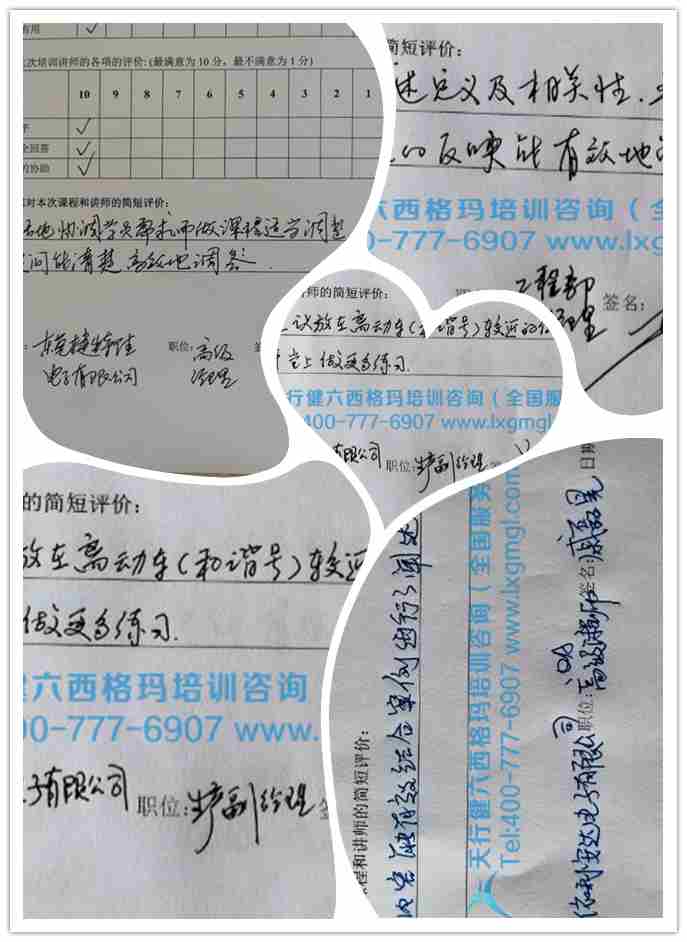 有用
次培训讲师的各项的评价:(最满意为 10 分，最不满意为 1 分)
10 9 8 7 6 5 4 3 2 1
全回答
的协助
对本次课程和讲师的简短评价:
做课程适当调整
间能清楚高效地调
电子有限公司 职位: 高级
经理
简短评价:
述定义及相关性.
的反映能有效地
六西格玛培训咨询（全
0-777-6907 www.lxg
工程部
经理 签名:
讲师的简短评价:
议放在离动车(和谐号)较远的
堂上做更多练习.
行健六西格玛培训咨询（全国服
400-777-6907 www.lxgmgl.com
有限公司 职位: 生产副经理
的简短评价:
放在离动车(和谐号)较远
做更多练习.
健六西格玛培训咨询
00-777-6907 www.
子有限公司 职位: 生产副经理
程和讲师的简短评价:
有效结合案例进行了阐述
天行健六西格玛培训咨询（全国服务
Tel:400-777-6907 www.lxgmgl.com
电子有限公司 职位: 高级 签名: 日期